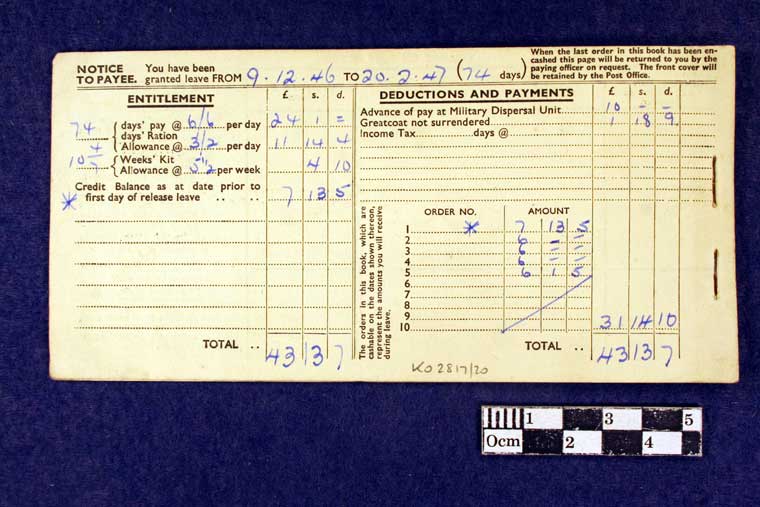 NOTICE TO PAYEE. You have been granted leave FROM 9.12.46 TO 20.2.47 (74 days)
When the last order in this book has been en-
cashed this page will be returned to you by the
paying officer on request. The front cover will
be retained by the Post Office.
ENTITLEMENT £ s. d.
74 days' pay @ 6/6 per day 24 1 =
days' Ration Allowance @ 3/2 per day 11 14 4
10 4/7 Weeks' Kit Allowance @ 5½ per week 4 10
Credit Balance as at date prior to
* first day of release leave .. .. 7 13 5
TOTAL .. 43 13 7
DEDUCTIONS AND PAYMENTS £ s. d.
Advance of pay at Military Dispersal Unit 10 - -
Greatcoat not surrendered 1 18 9
Income Tax days @
The orders in this book, which are
cashable on the dates shown thereon,
represent the amounts you will receive
during leave.
ORDER NO. AMOUNT
1 * 7 13 5
2 6 - -
3 6 = =
4 6 = =
5 6 1 5
6
7
8
9
10 31 14 10
TOTAL .. 43 13 7
KO 2817/20
0cm 1 2 3 4 5